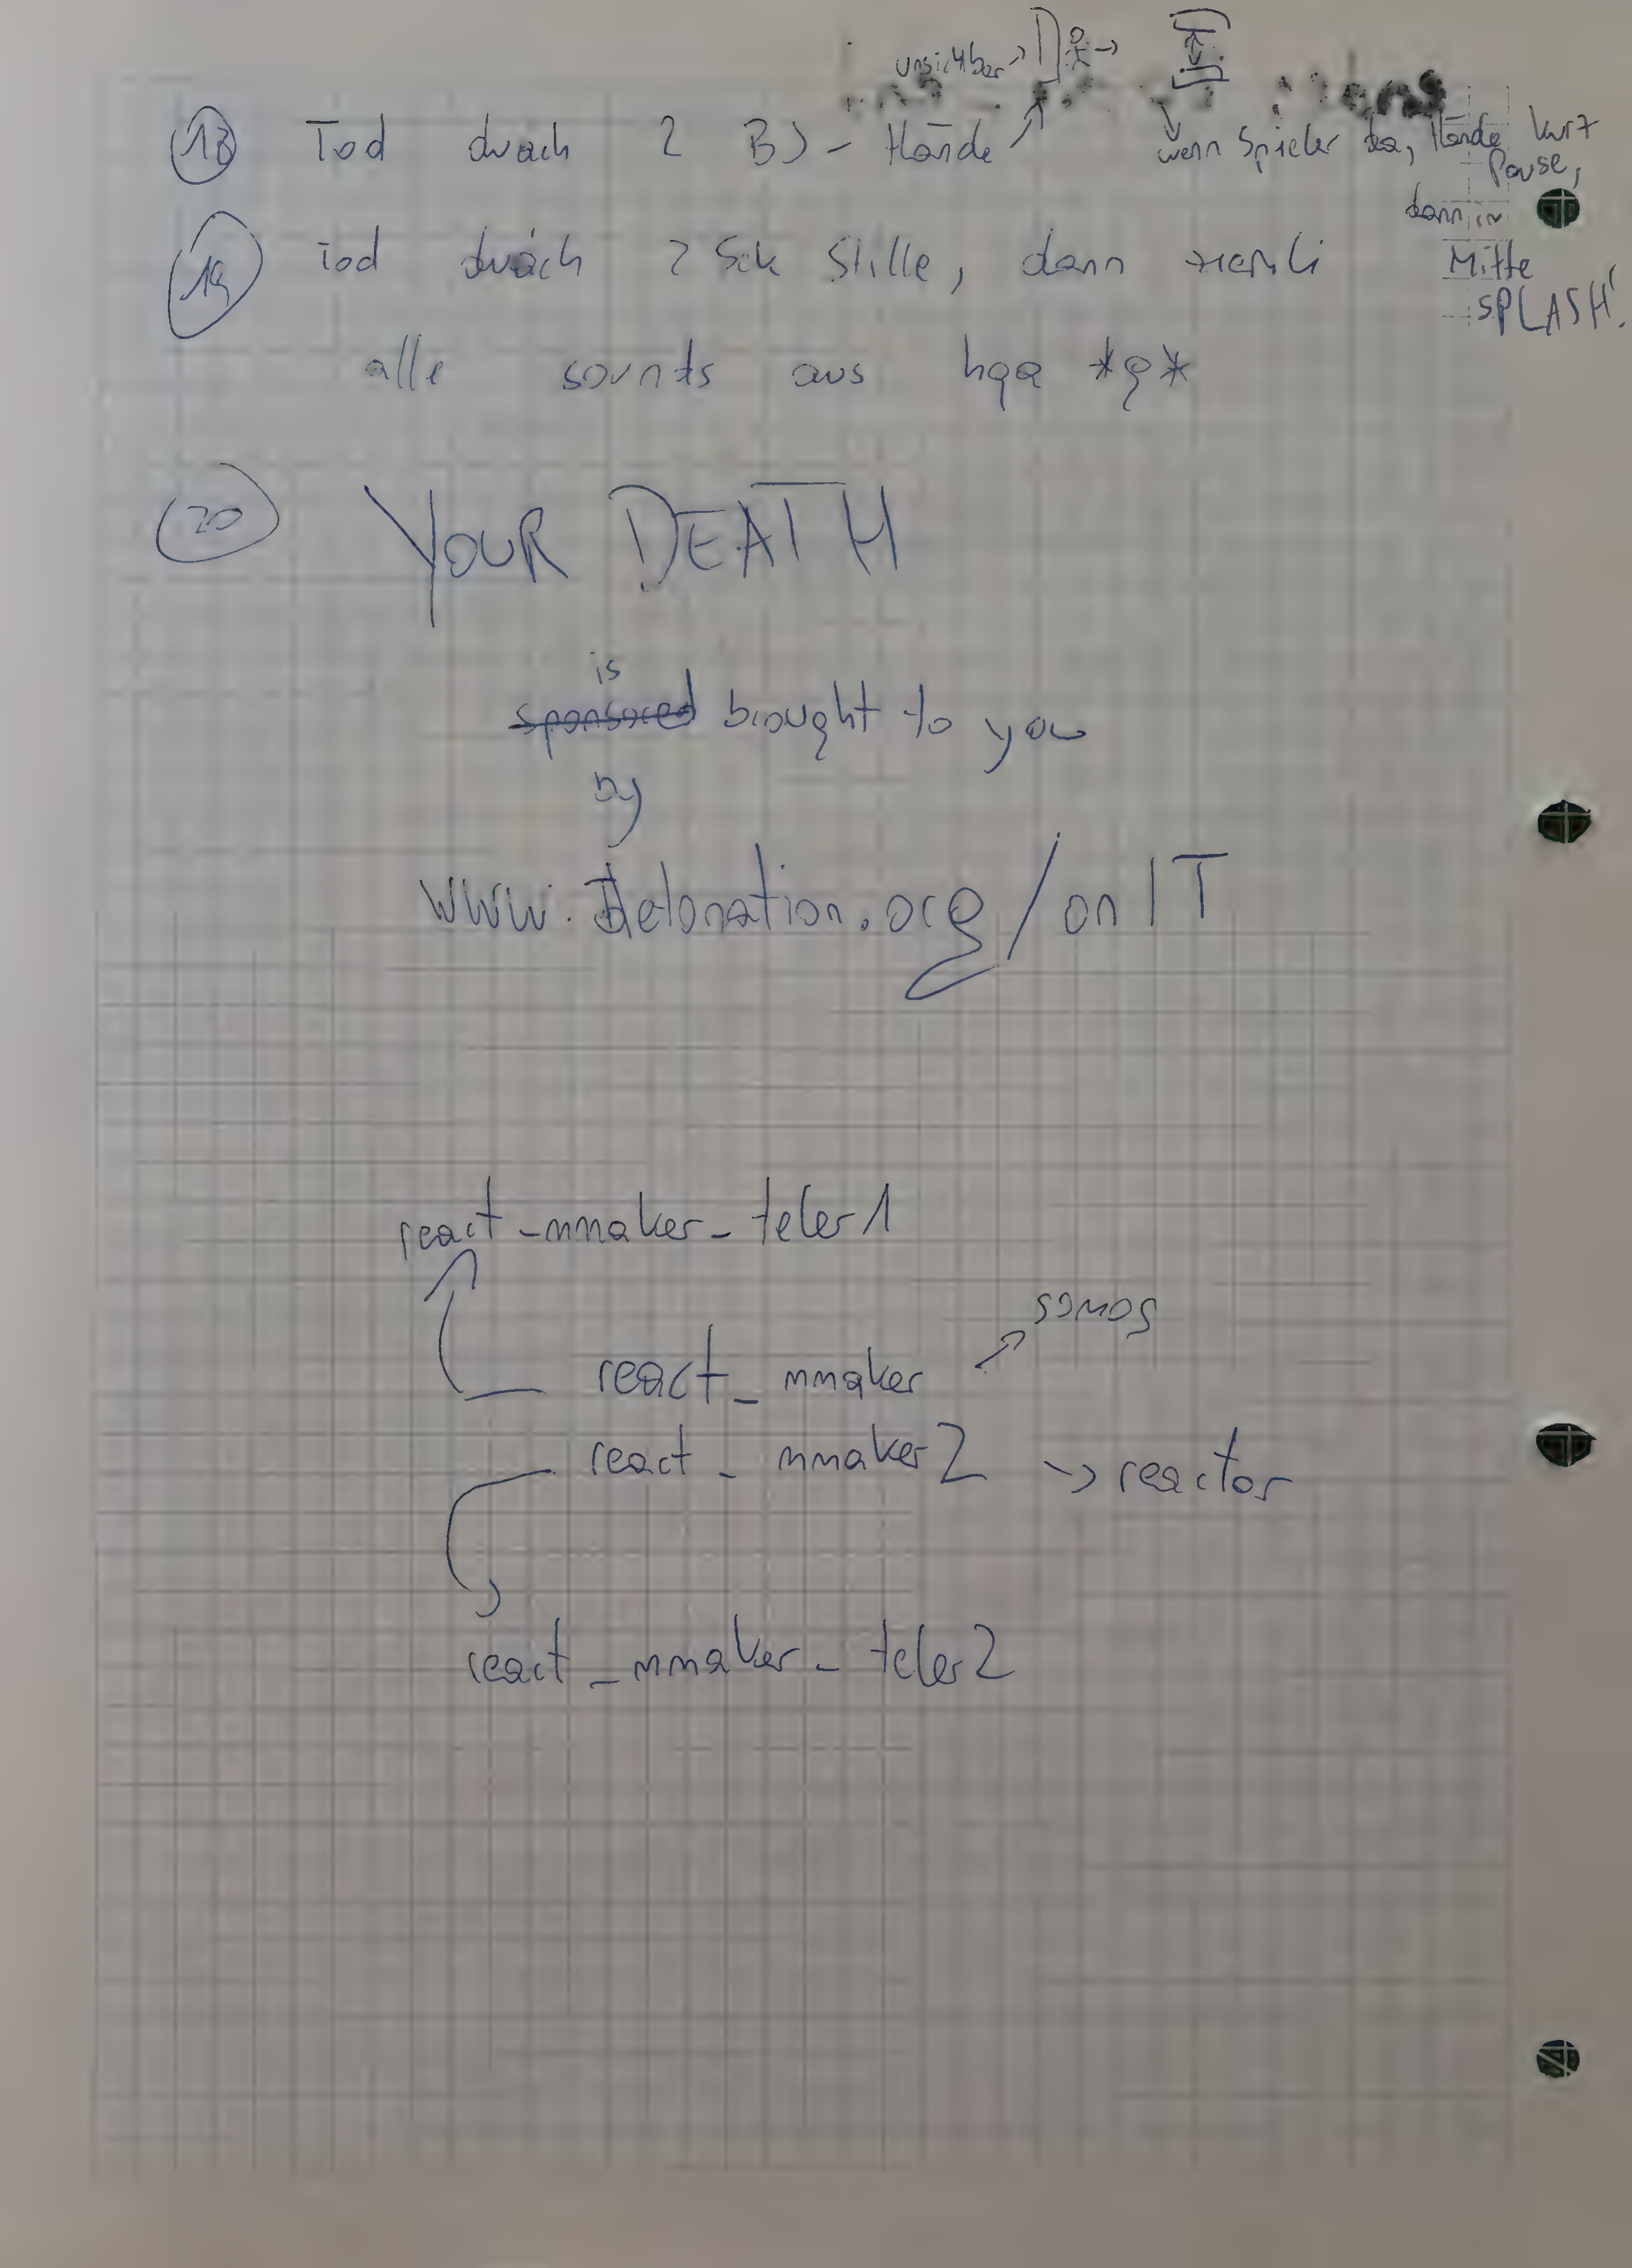 unsichtbar →
18 Tod durch 2 BJ - Hände
wenn Spieler da, Hände kurz
Pause,
dann in
Mitte
SPLASH!
19 Tod durch 2 Sek Stille, dann
alle sounds aus *g*
20 YOUR DEATH
is
sponsored brought to you
by
www.detonation.org/onIT
react_mmaker_teler1
react_mmaker → somos
react_mmaker2 → reactor
react_mmaker_teler2